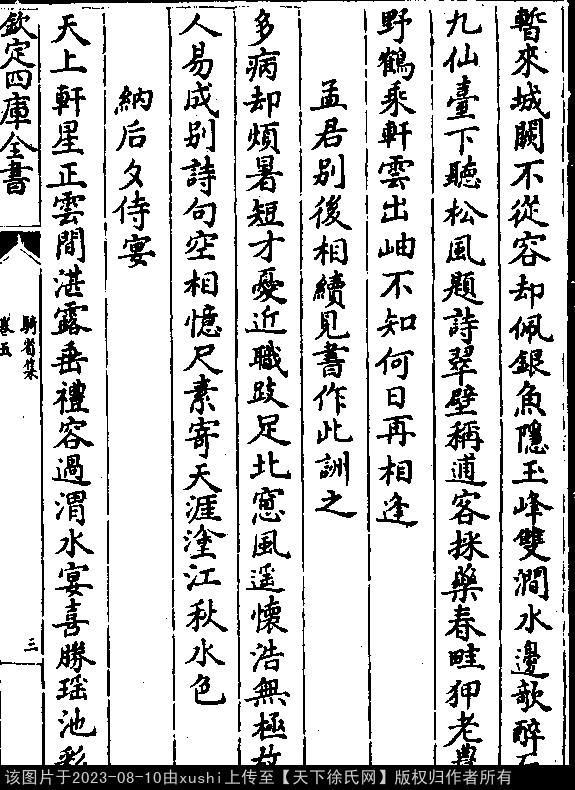 暫來城闕不從容却佩銀魚隱玉峰雙澗水邊歌醉
九仙臺下聽松風題詩翠壁稱逋客採藥春畦狎老
野鶴乘軒雲出岫不知何日再相逢
孟君别後相續見書作此詶之
多病却煩暑短才憂近職跂足北窻風遥懷浩無極故
人易成别詩句空相憶尺素寄天涯塗江秋水色
納后夕侍宴
天上軒星正雲間湛露垂禮容過渭水宴喜勝瑶池彩
欽定四庫全書
騎省集
卷五
三
该图片于2023-08-10由xushi上传至【天下徐氏网】版权归作者所有